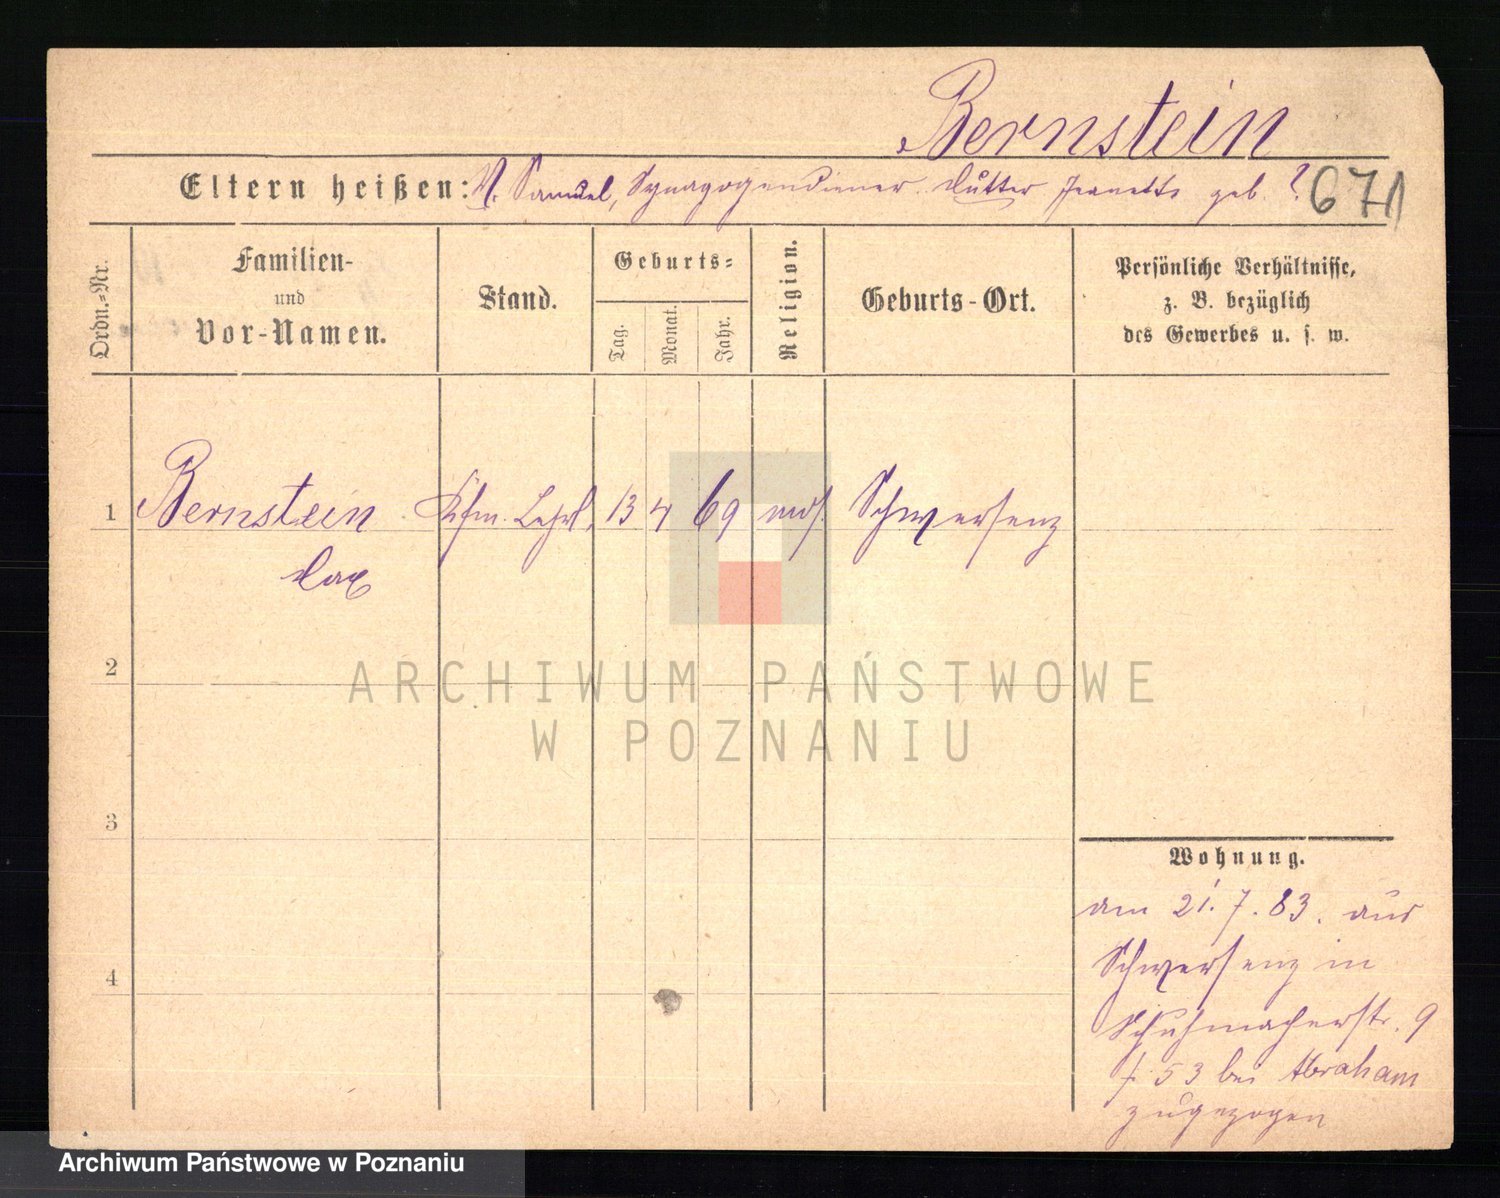 Bernstein
Eltern heißen: V. Samuel, Synagogendiener Mutter Jeanette geb. ?
671
Ordn.-Nr.
Familien-
und
Vor-Namen.
Stand.
Geburts-
Tag.
Monat.
Jahr.
Religion.
Geburts-Ort.
Persönliche Verhältnisse,
z. B. bezüglich
des Gewerbes u. s. w.
1 Bernstein Kfm. Lehrl. 13 4 69 mos. Schwersenz
Max
2
ARCHIWUM PAŃSTWOWE
W POZNANIU
3
4
Wohnung.
am 21.7.83. aus
Schwersenz in
Schuhmacherstr. 9
53 bei Abraham
zugezogen
Archiwum Państwowe w Poznaniu